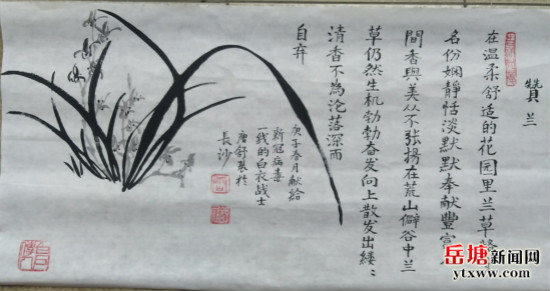 贊兰
在温柔舒适的花园里兰草
名份娴静恬淡默默奉献豐
間香與美从不张扬在荒山僻谷中兰
草仍然生机勃勃奋发向上散发出缕：
清香不為沦落深而
自弃
庚子春月献给
新冠病毒
一线的白衣战士
唐舒於
長沙
岳塘新闻网
ytxww.com